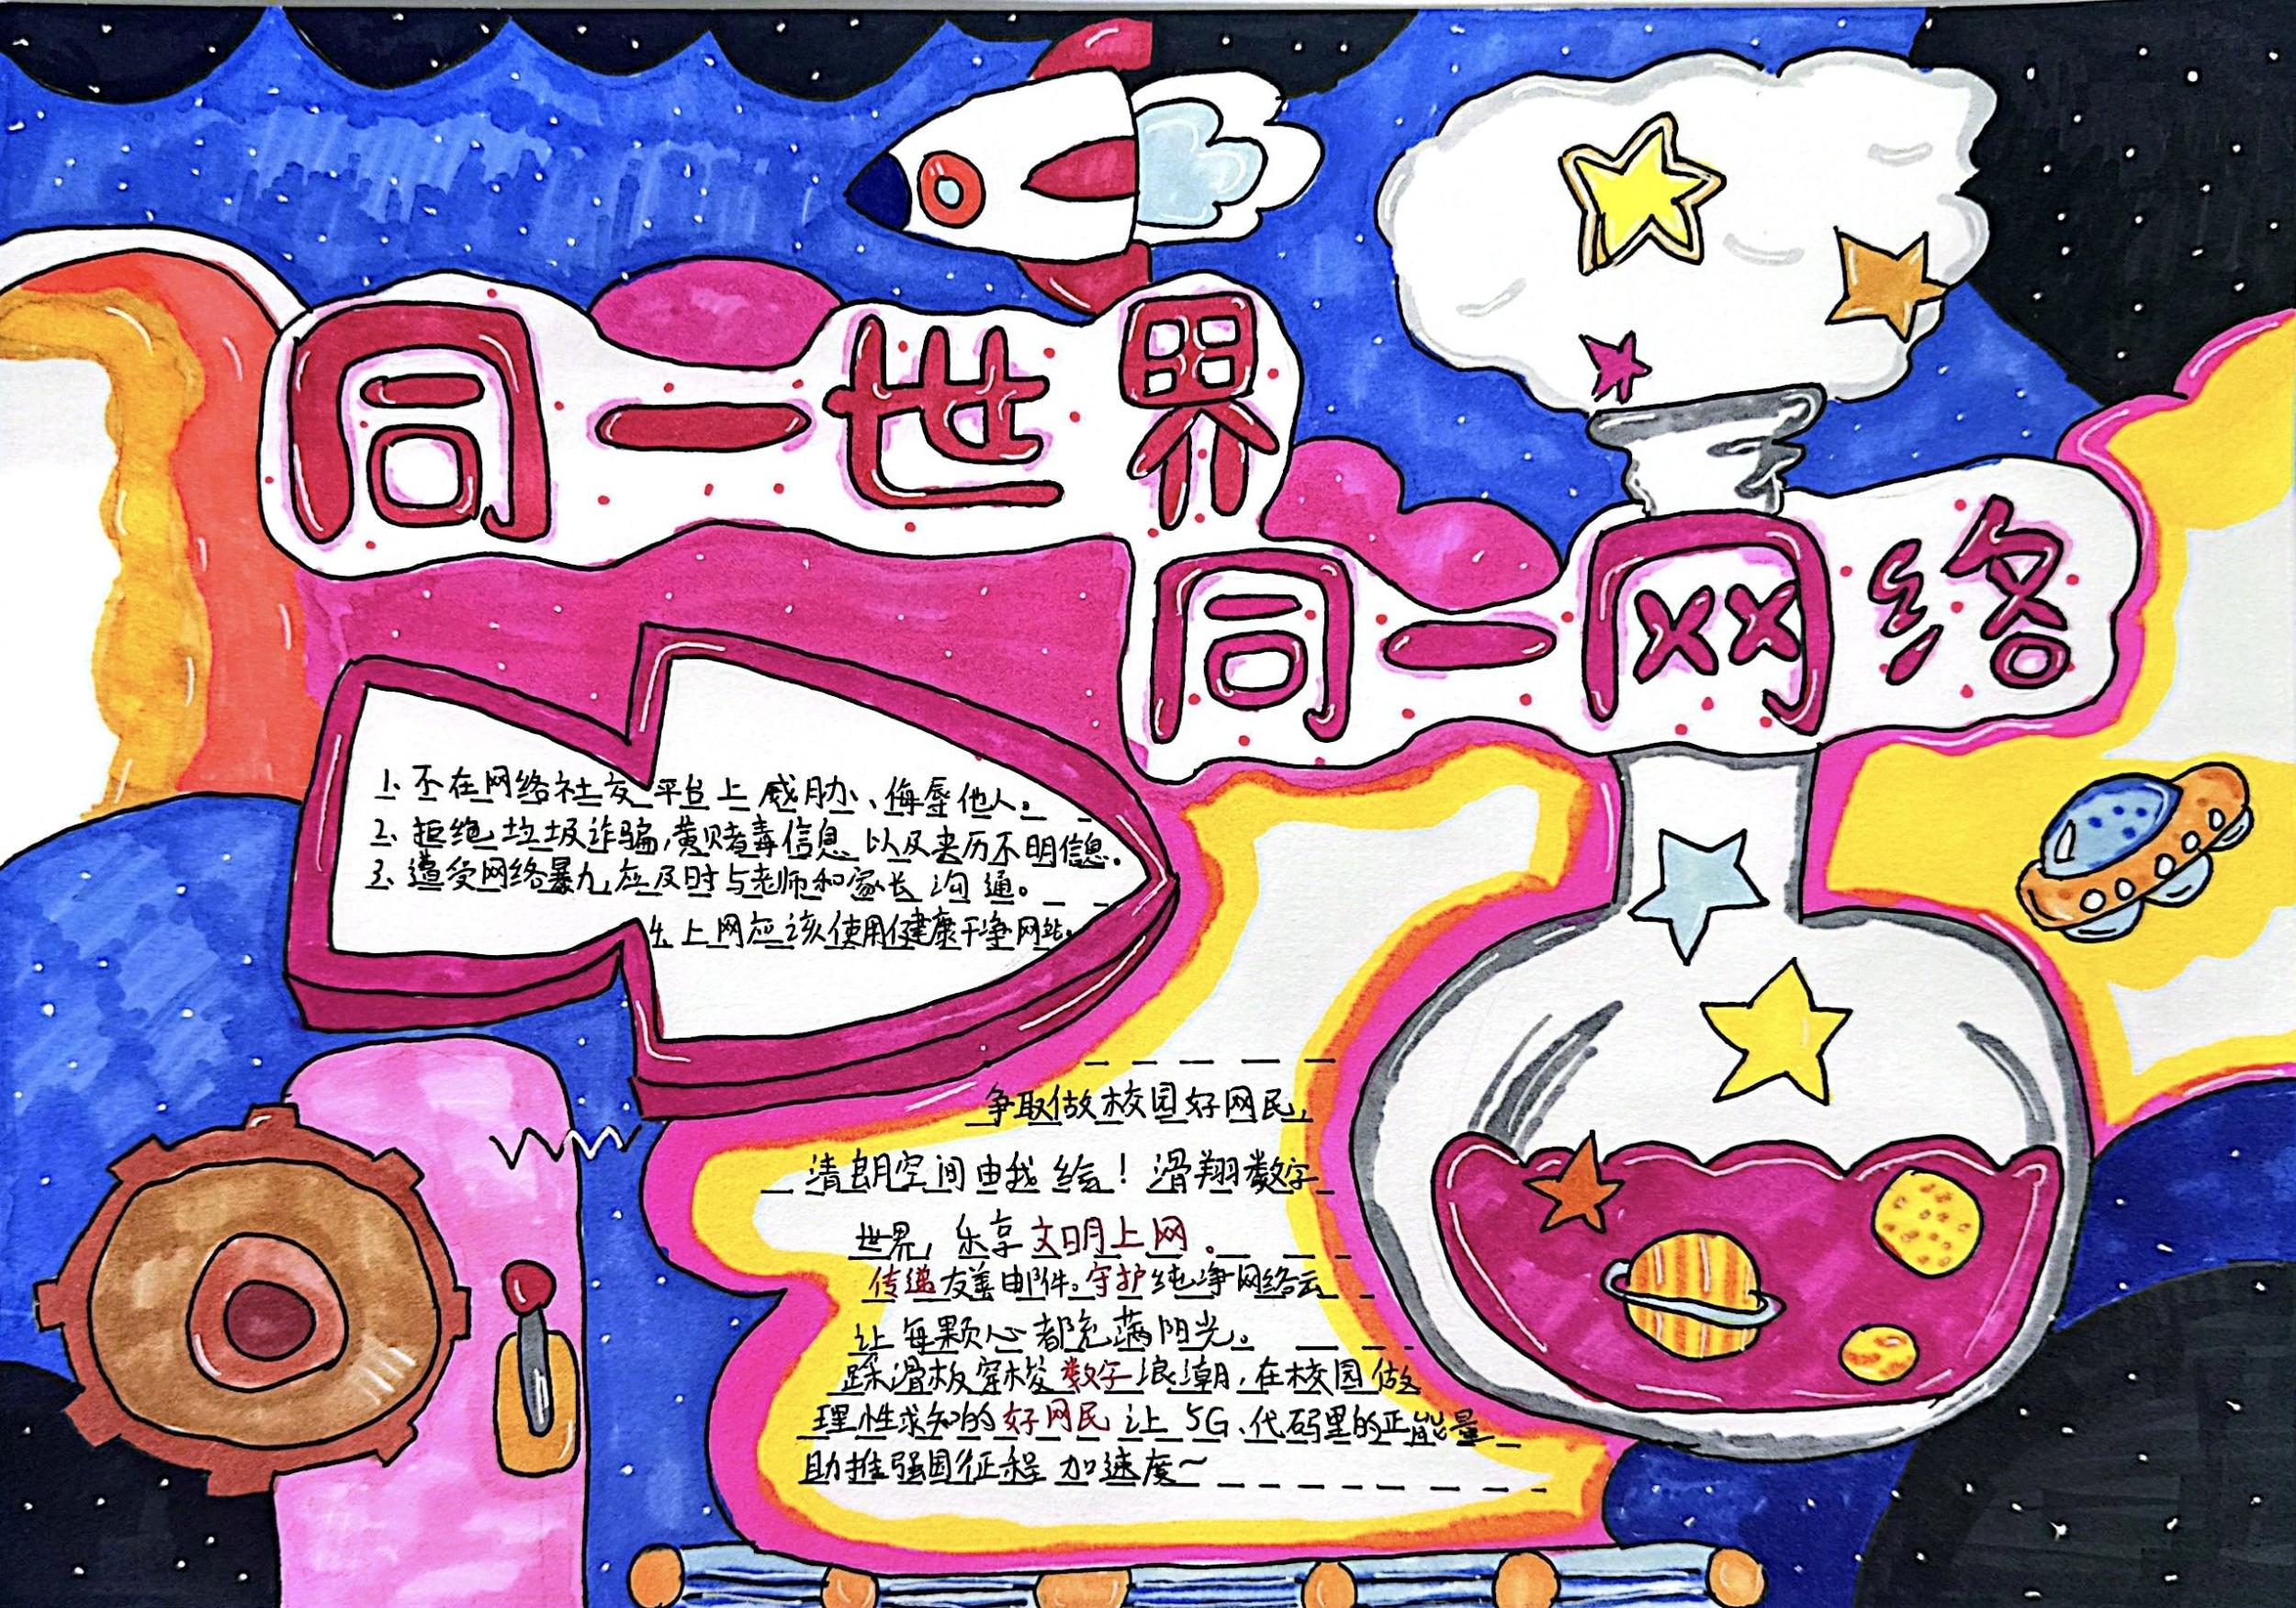 同一世界
同一网络
1、不在网络社交平台上威胁、侮辱他人。
2、拒绝垃圾诈骗,黄赌毒信息以及来历不明信息。
3、遭受网络暴力,应及时与老师和家长沟通。
4、上网应该使用健康干净网站。
争取做校园好网民,
清朗空间由我绘!滑翔数字
世界,乐享文明上网。
传递友善邮件。守护纯净网络云
让每颗心都充满阳光。
踩滑板穿梭数字浪潮,在校园做
理性求知的好网民让5G、代码里的正能量
助推强国征程加速度~